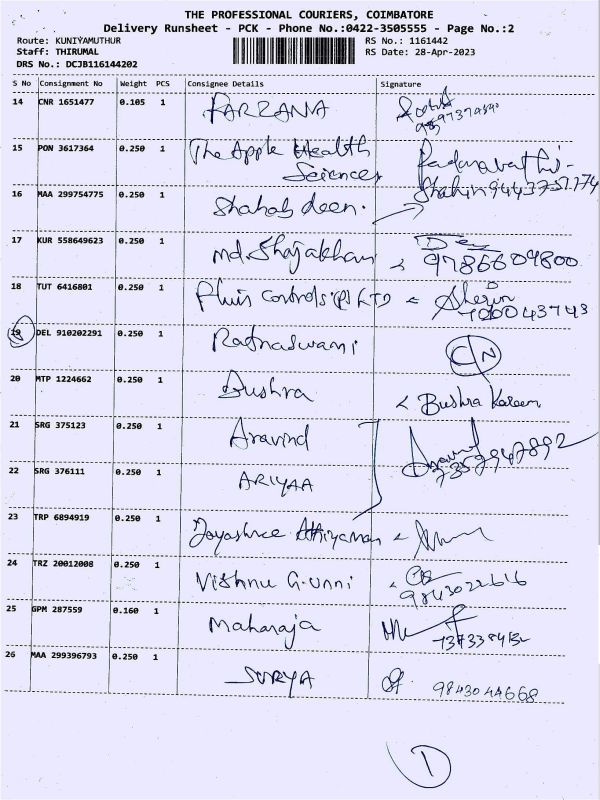 THE PROFESSIONAL COURIERS, COIMBATORE
Delivery Runsheet - PCK - Phone No.:0422-3505555 - Page No.:2
Route: KUNIYAMUTHUR RS No.: 1161442
Staff: THIRUMAL RS Date: 28-Apr-2023
DRS No.: DCJB116144202
S No Consignment No Weight PCS Consignee Details Signature
14 CNR 1651477 0.105 1 FARZANA
15 PON 3617364 0.250 1 The Apple Health
Sciences Padmavathi-
16 MAA 299754775 0.250 1 Shahab deen. Shahin
17 KUR 558649623 0.250 1 md.Shajakhan 9786609800
18 TUT 6416801 0.250 1 Pluis Controls (P) LTD Sherin
19 DEL 910202291 0.250 1 Ratnaswami CN
20 MTP 1224662 0.250 1 Bushra Bushra Kareem
21 SRG 375123 0.250 1 Aravind
22 SRG 376111 0.250 1 ARIYAA 7352947892
23 TRP 6894919 0.250 1 Jayashree Athiyaman
24 TRZ 20012008 0.250 1 Vishnu G.unni 9843022616
25 GPM 287559 0.160 1 Maharaja
26 MAA 299396793 0.250 1 SURYA 9843044668
1